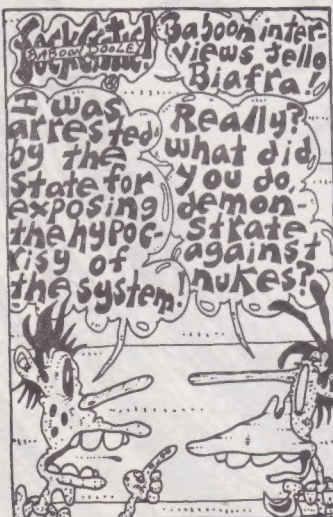 BABOON DOOLEY
Baboon inter-
views Jello
Biafra!
I was
arrested
by the
state for
exposing
the hypoc-
risy of
the system!
Really?
what did
you do,
demon-
strate
against
nukes?